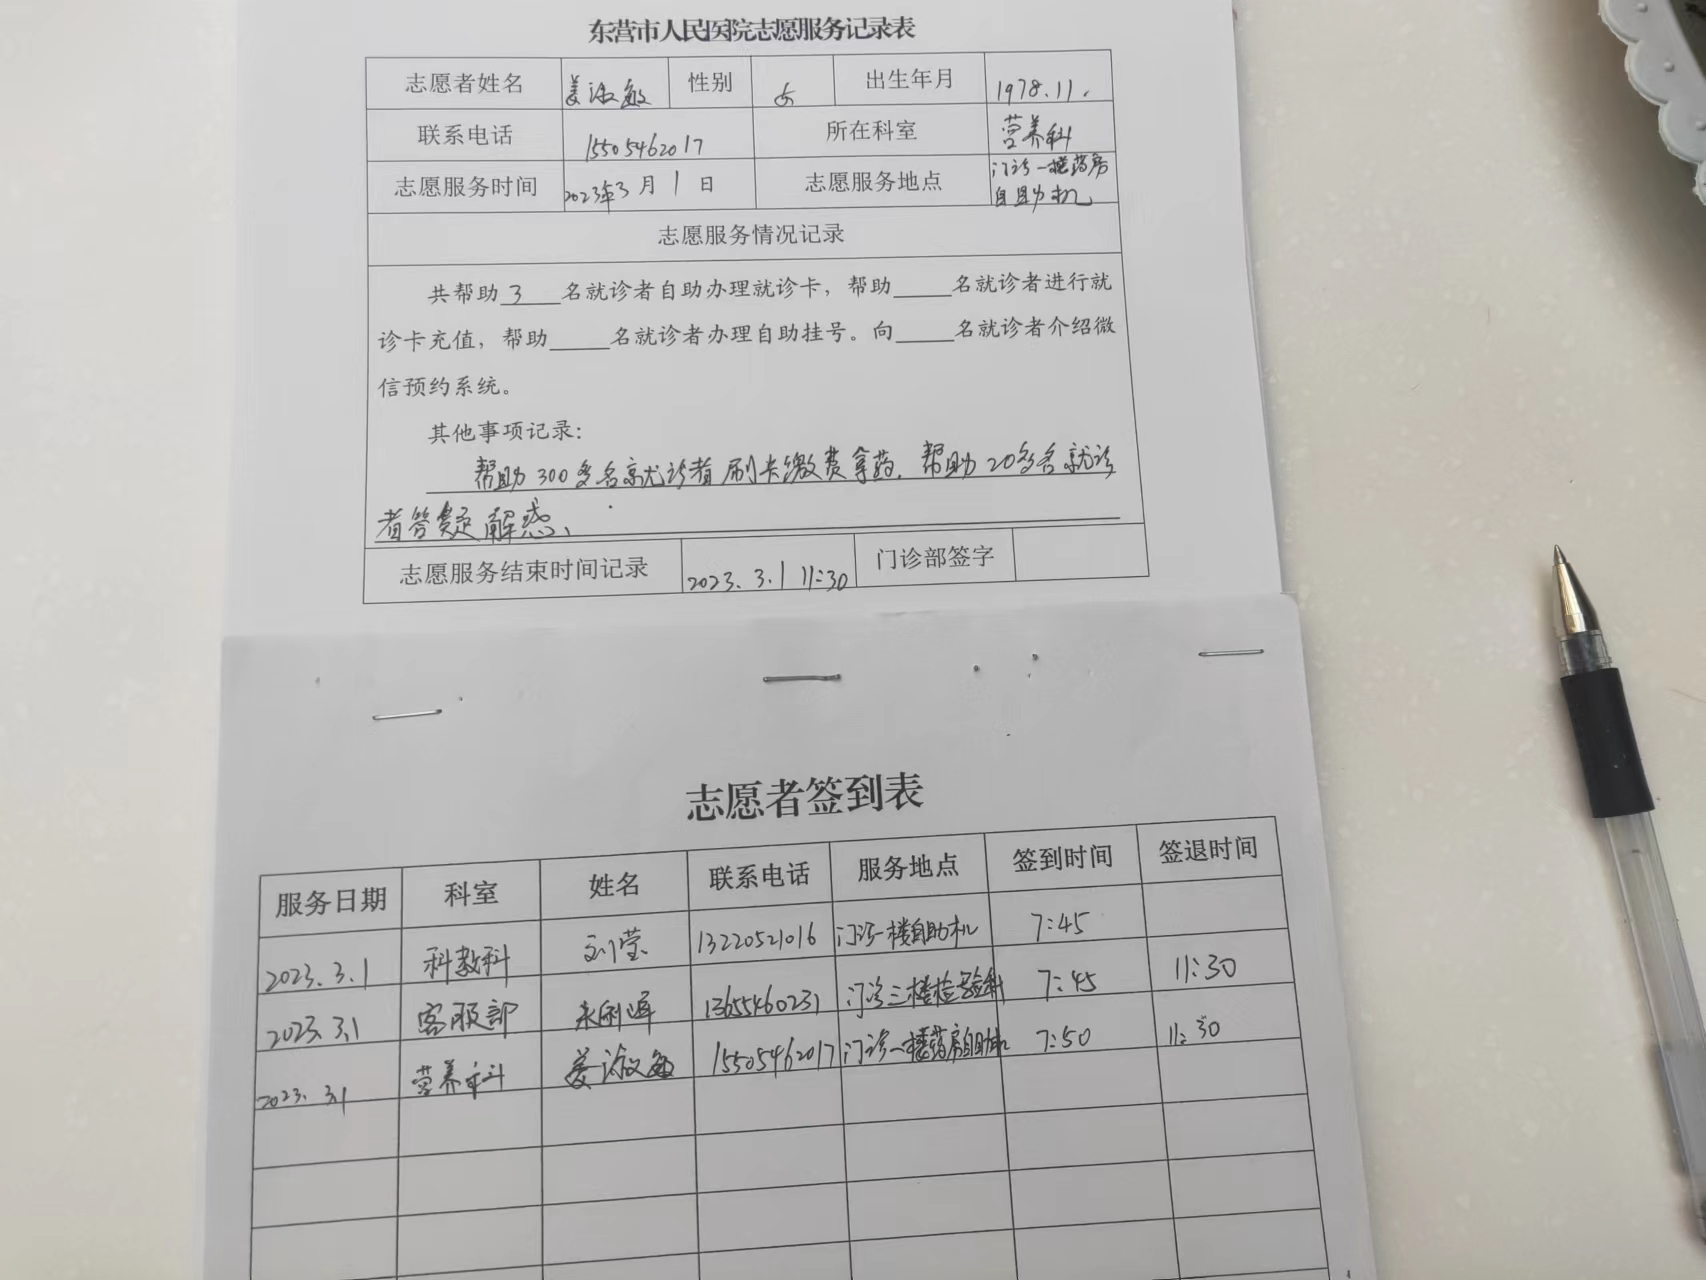 东营市人民医院志愿服务记录表
志愿者姓名 姜淑敏 性别 女 出生年月 1978.11.
联系电话 15505462017 所在科室 营养科
志愿服务时间 2023年3月1日 志愿服务地点 门诊一楼药房
自助机
志愿服务情况记录
共帮助3名就诊者自助办理就诊卡，帮助_____名就诊者进行就
诊卡充值，帮助_____名就诊者办理自助挂号。向_____名就诊者介绍微
信预约系统。
其他事项记录：
帮助300多名就诊者刷卡缴费拿药.帮助20多名就诊
者答疑解惑、
志愿服务结束时间记录 2023.3.1 11:30 门诊部签字
志愿者签到表
服务日期 科室 姓名 联系电话 服务地点 签到时间 签退时间
2023.3.1 科教科 刘莹 13220521016 门诊一楼自助机 7:45
2023.3.1 客服部 13655460231 门诊三楼检验科 7:45 11:30
2023.3.1 营养科 姜淑敏 15505462017 门诊一楼药房自助机 7:50 11:30